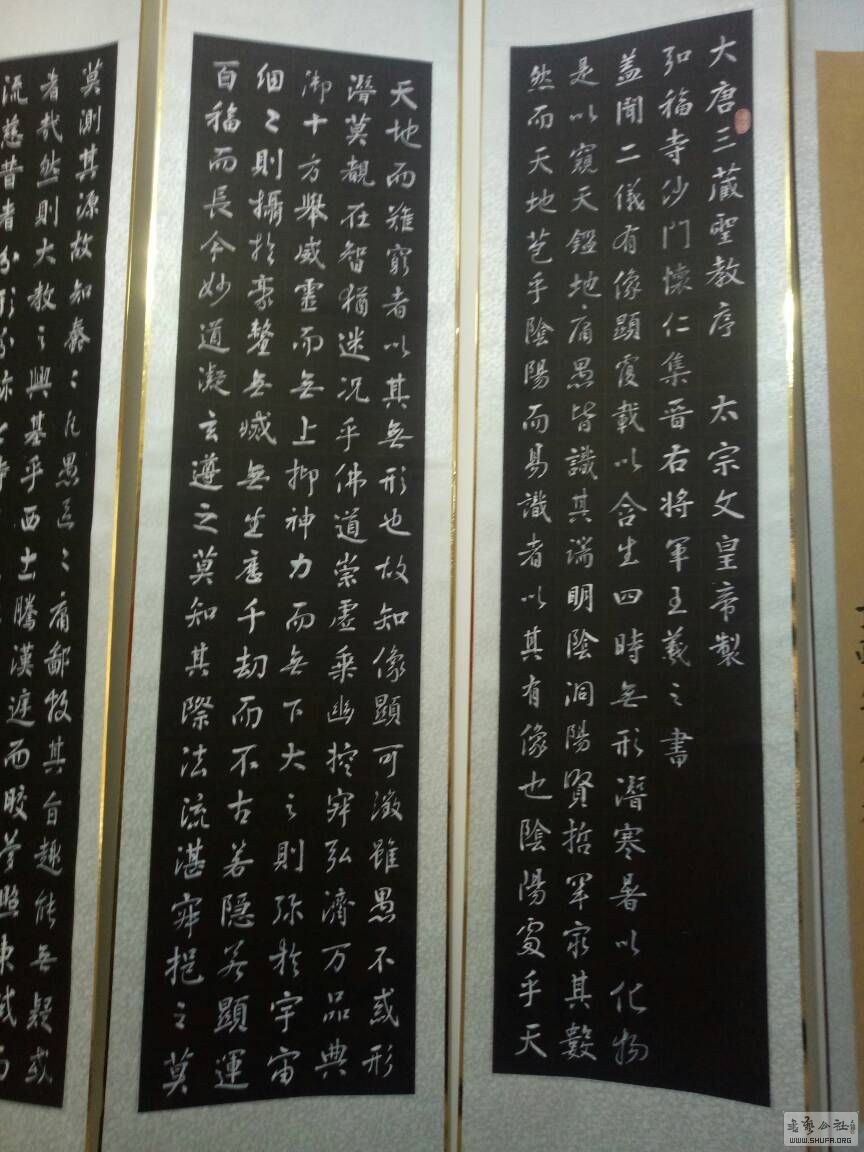 大唐三藏聖教序 太宗文皇帝製
弘福寺沙門懷仁集晉右將軍王羲之書
蓋聞二儀有像顯覆載以含生四時無形潛寒暑以化物
是以窺天鑑地庸愚皆識其端明陰洞陽賢哲罕窮其數
然而天地苞乎陰陽而易識者以其有像也陰陽處乎天
天地而難窮者以其無形也故知像顯可徵雖愚不惑形
潛莫覩在智猶迷況乎佛道崇虛乘幽控寂弘濟万品典
御十方舉威靈而無上抑神力而無下大之則彌於宇宙
細之則攝於豪釐無滅無生歷千劫而不古若隱若顯運
百福而長今妙道凝玄遵之莫知其際法流湛寂挹之莫
莫測其源故知蠢々凡愚區々庸鄙投其旨趣能無疑惑
者哉然則大教之興基乎西土騰漢庭而皎夢照東域而
流慈昔者分形分跡
书艺公社
WWW.SHUFA.ORG